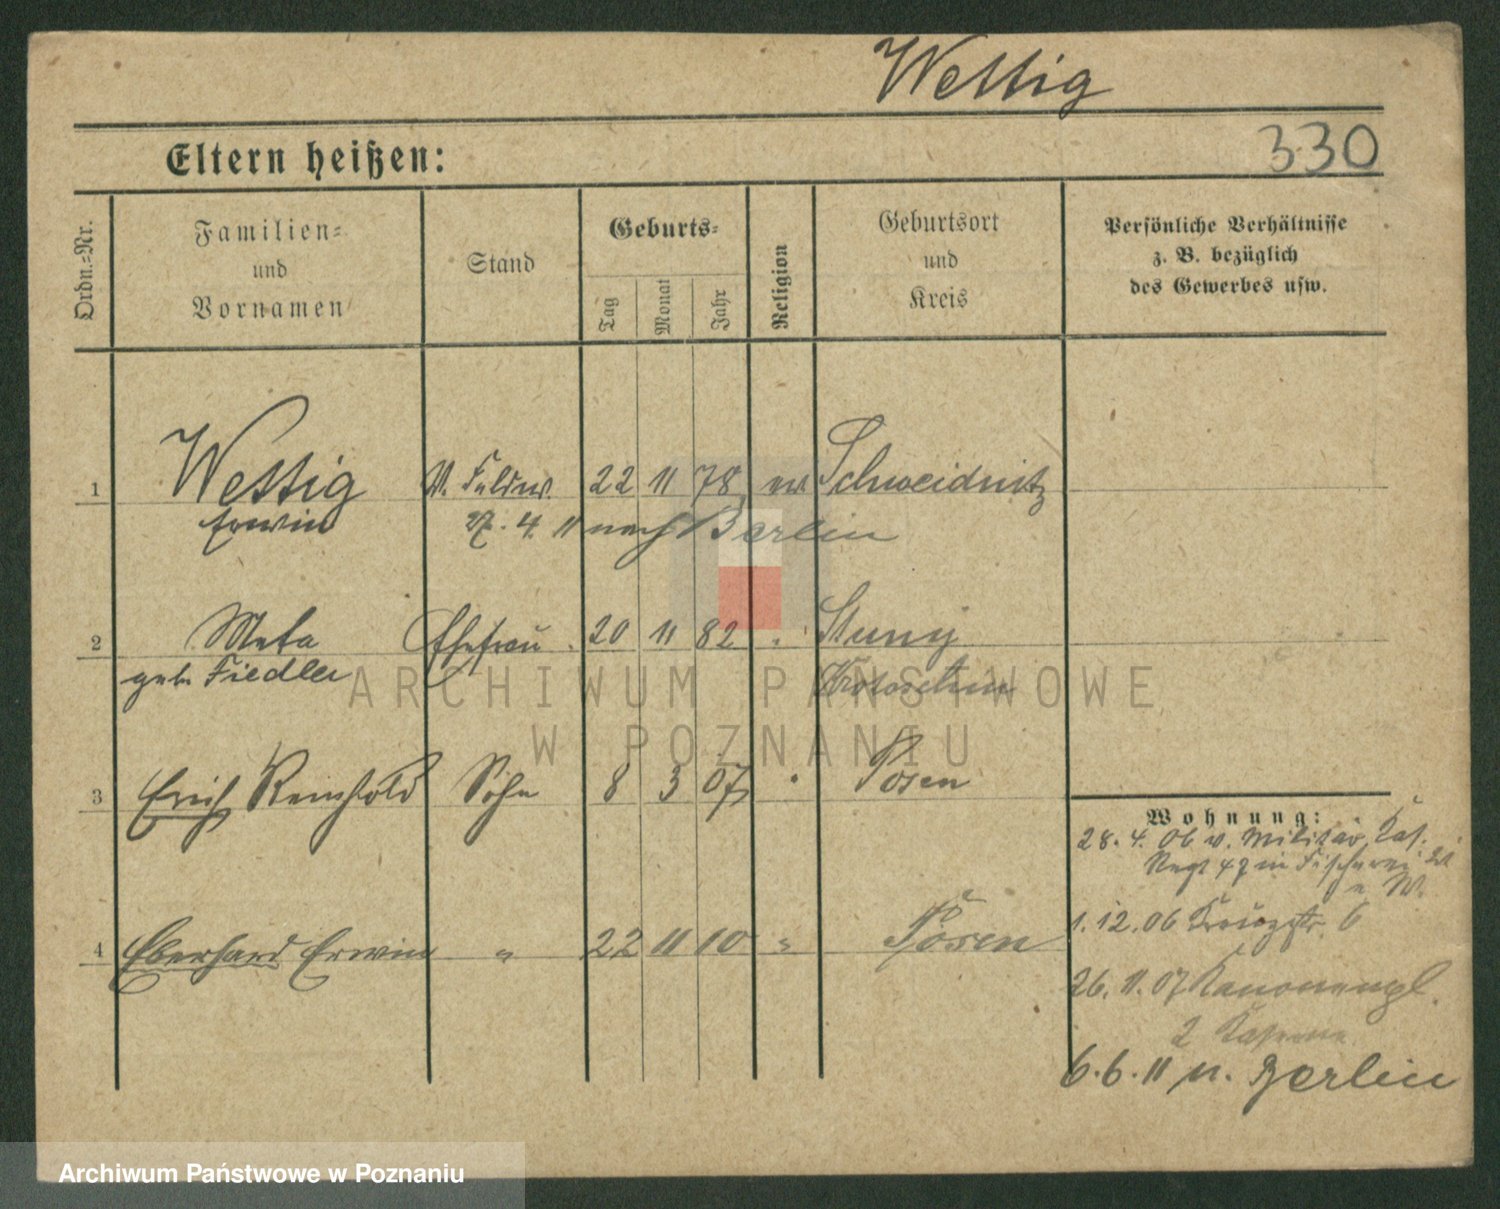 Wettig
330
Eltern heißen:
Ordn.-Nr.
Familien- und Vornamen
Stand
Geburts-
Tag
Monat
Jahr
Religion
Geburtsort und Kreis
Persönliche Verhältnisse
z. B. bezüglich
des Gewerbes usw.
1 Wettig 22 11 78 ev Schweidnitz
Erwin 27. 4. 11 nach Berlin
2 Meta Ehefrau 20 11 82
geb. Fiedler Krotoschin
3 Erich Reinhold Sohn 8 3 07 Posen
4 Eberhard Erwin " 22 11 10 " Posen
Wohnung:
28. 4. 06 v. Militär
1. 12. 06 Kreuzstr. 6
26. 11. 07 Kanonenpl.
2 Kaserne
6. 6. 11 n. Berlin
ARCHIWUM PAŃSTWOWE
W POZNANIU
Archiwum Państwowe w Poznaniu